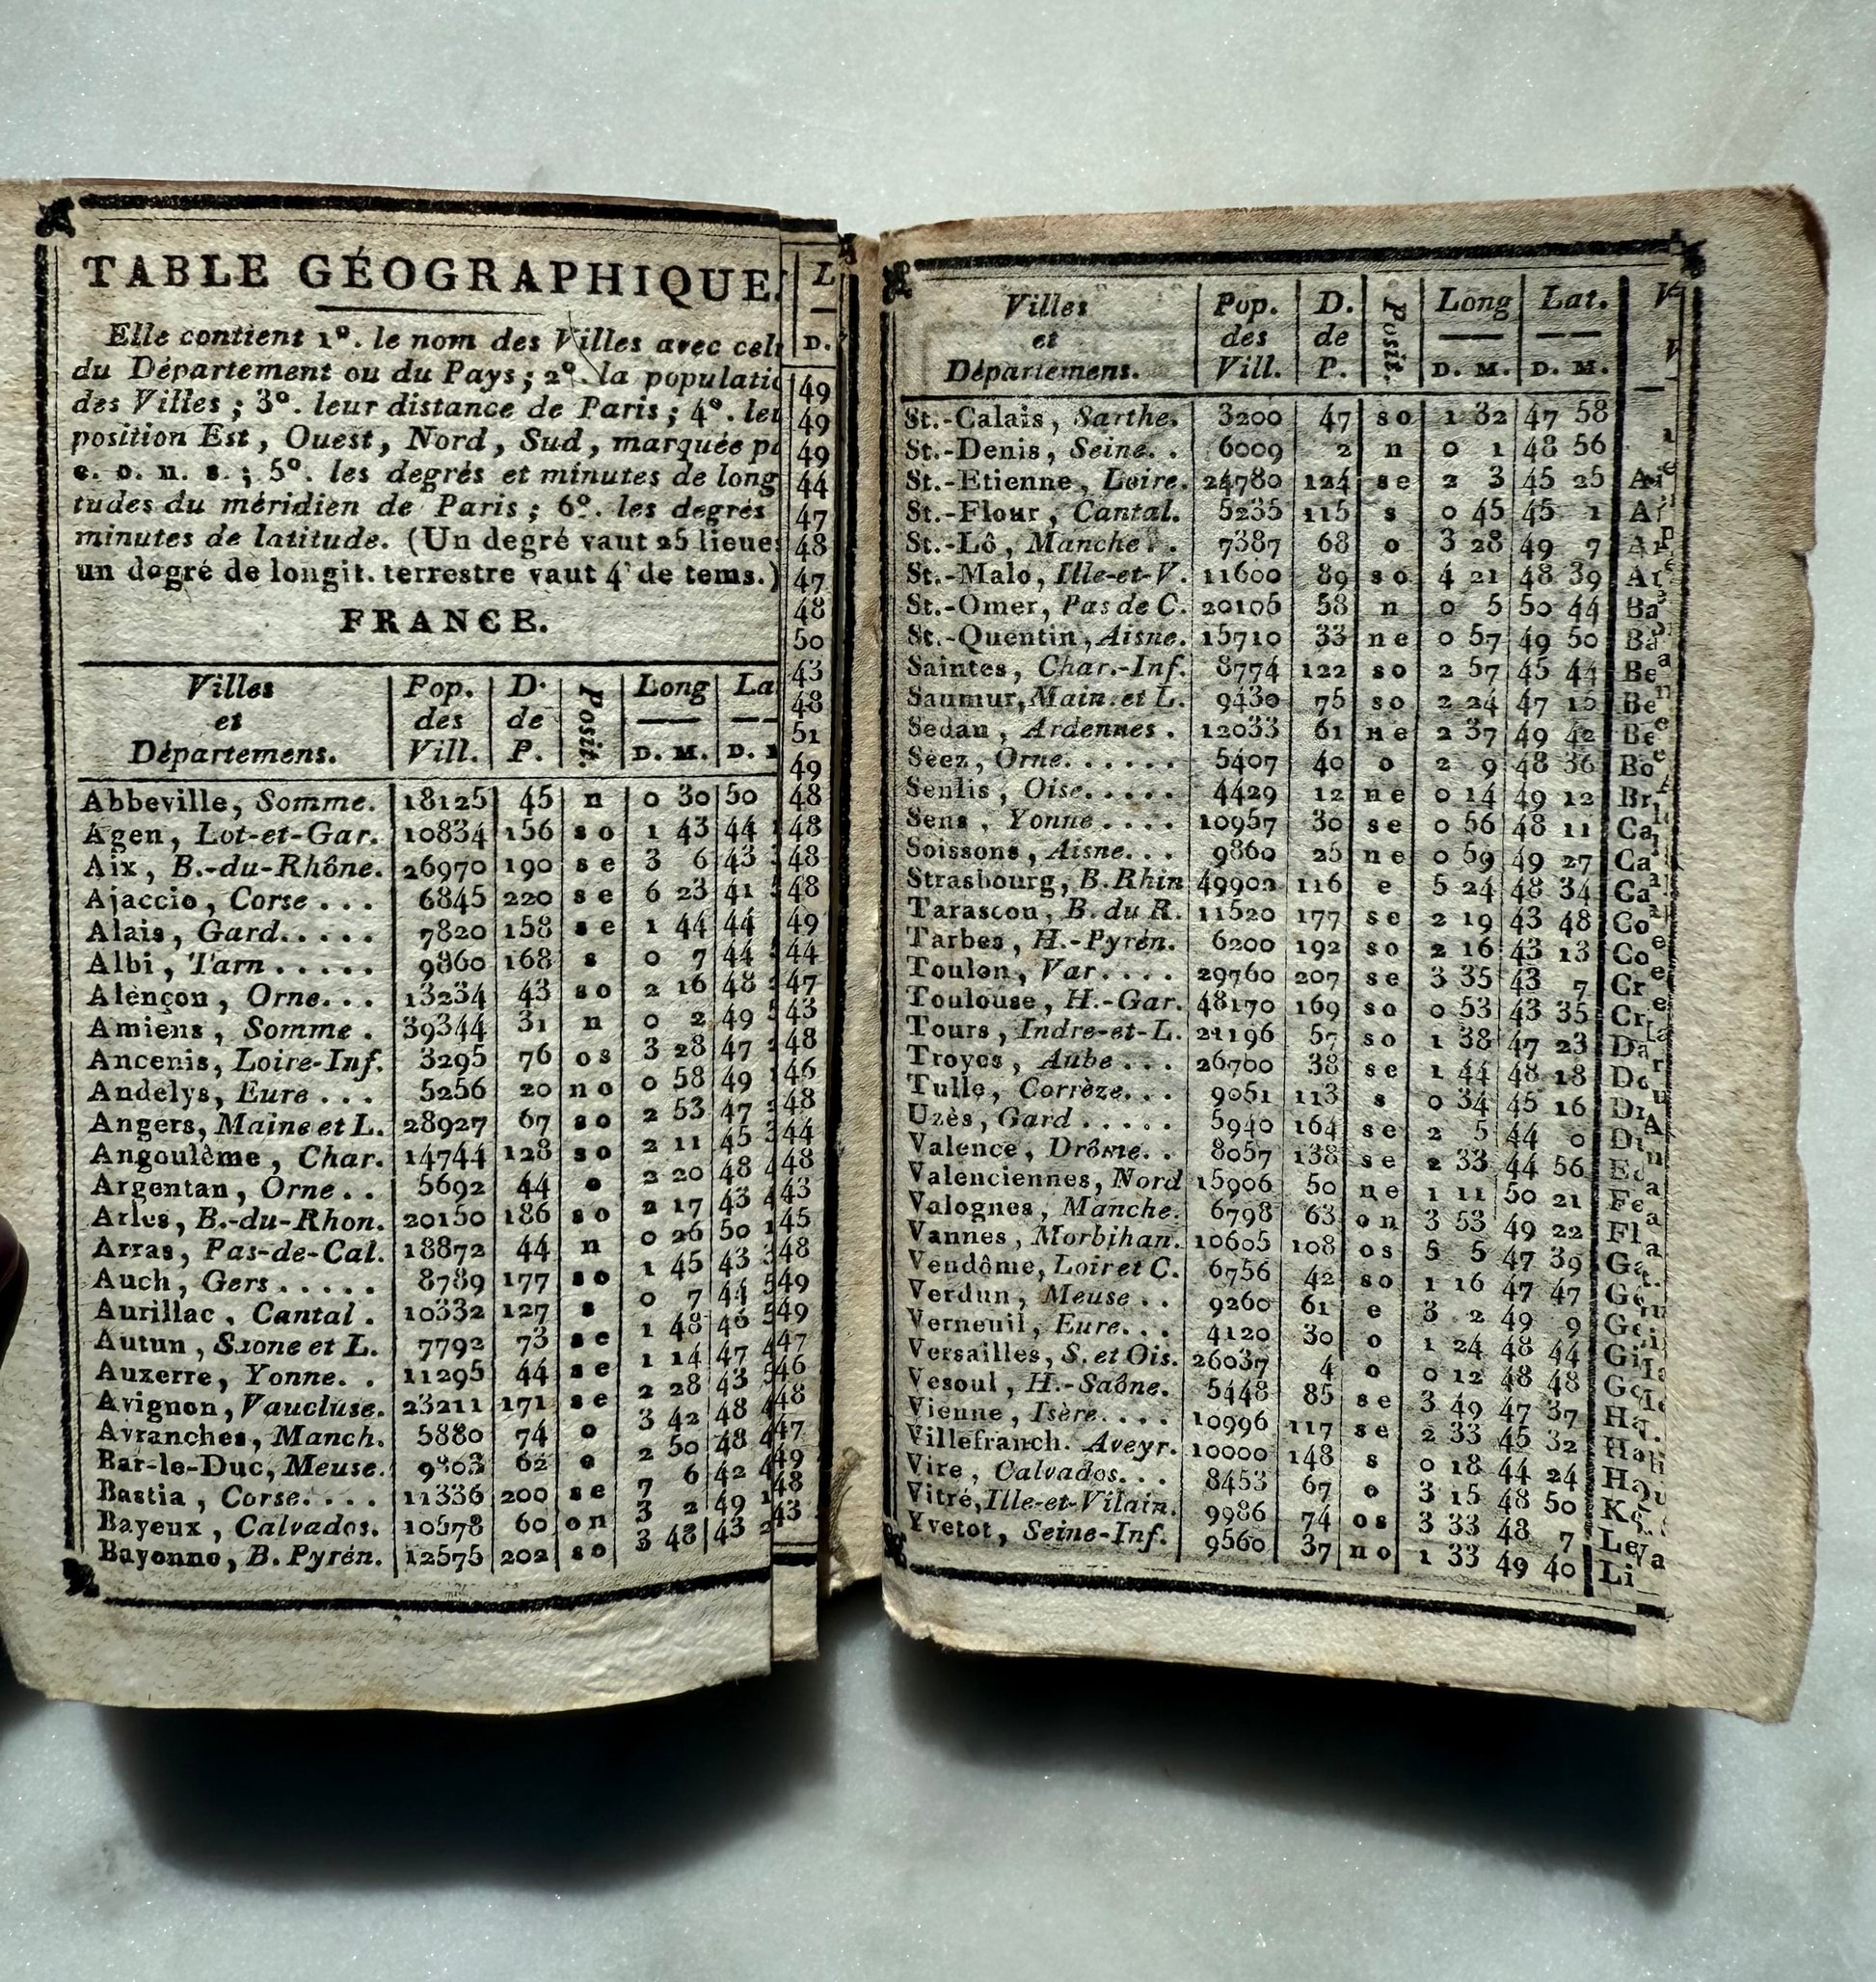 TABLE GÉOGRAPHIQUE.
Elle contient 1º. le nom des Villes avec
du Département ou du Pays; 2º. la
des Villes; 3º. leur distance de Paris; 4º.
position Est, Ouest, Nord, Sud, marquée
e. o. n. s.; 5º. les degrés et minutes de
tudes du méridien de Paris; 6º. les degrés
minutes de latitude. (Un degré vaut 25
un degré de longit. terrestre vaut 4' de tems.)
FRANCE.
Villes et Départemens. Pop. des Vill. D. de P. Posit. Long D. M. D.
Abbeville, Somme. 18125 45 n 0 30 50
Agen, Lot-et-Gar. 10834 156 so 1 43 44
Aix, B.-du-Rhône. 26970 190 se 3 6 43
Ajaccio, Corse ... 6845 220 se 6 23 41
Alais, Gard..... 7820 158 se 1 44 44
Albi, Tarn ..... 9860 168 s 0 7 44
Alençon, Orne... 13234 43 so 2 16 48
Amiens, Somme . 39344 31 n 0 2 49
Ancenis, Loire-Inf. 3295 76 os 3 28 47
Andelys, Eure ... 5256 20 no 0 58 49
Angers, Maine et L. 28927 67 so 2 53 47
Angoulême, Char. 14744 128 so 2 11 45
Argentan, Orne.. 5692 44 o 2 20 48
Arles, B.-du-Rhon. 20150 186 so 2 17 43
Arras, Pas-de-Cal. 18872 44 n 0 26 50
Auch, Gers ..... 8789 177 so 1 45 43
Aurillac, Cantal . 10332 127 s 0 7 44
Autun, Saone et L. 7792 73 se 1 48 46
Auxerre, Yonne. . 11295 44 se 1 14 47
Avignon, Vaucluse. 23211 171 se 2 28 43
Avranches, Manch. 5880 74 o 3 42 48
Bar-le-Duc, Meuse. 62 2 50 48
Bastia, Corse.... 11336 200 se 7 6 42
Bayeux, Calvados. 10578 60 on 3 2 49
Bayonne, B. Pyrén. 12575 202 so 3 48 43
L
D.
49
49
49
44
47
48
47
48
50
43
48
51
49
48
48
48
48
49
44
47
43
48
46
48
44
48
43
45
48
49
49
47
46
48
47
49
48
43
Villes et Départemens. Pop. des Vill. D. de P. Posit. Long D. M. Lat. D. M.
St.-Calais, Sarthe. 3200 47 so 1 32 47 58
St.-Denis, Seine. . 6009 2 n 0 1 48 56
St.-Etienne, Loire. 24780 124 se 2 3 45 25
St.-Flour, Cantal. 5235 115 s 0 45 45 1
St.-Lô, Manche . . 7387 68 o 3 28 49 7
St.-Malo, Ille-et-V. 11600 89 so 4 21 48 39
St.-Omer, Pas de C. 20105 58 n 0 5 50 44
St.-Quentin, Aisne. 15710 33 ne 0 57 49 50
Saintes, Char.-Inf. 8774 122 so 2 57 45 44
Saumur, Main. et L. 9430 75 so 2 24 47 15
Sedan, Ardennes . 12033 61 ne 2 37 49 42
Séez, Orne...... 5407 40 o 2 9 48 36
Senlis, Oise..... 4429 12 ne 0 14 49 12
Sens, Yonne .... 10957 30 se 0 56 48 11
Soissons, Aisne... 9860 25 ne 0 59 49 27
Strasbourg, B. Rhin 49902 116 e 5 24 48 34
Tarascon, B. du R. 11520 177 se 2 19 43 48
Tarbes, H.-Pyrén. 6200 192 so 2 16 43 13
Toulon, Var.... 29760 207 se 3 35 43 7
Toulouse, H.-Gar. 48170 169 so 0 53 43 35
Tours, Indre-et-L. 21196 57 so 1 38 47 23
Troyes, Aube ... 26700 38 se 1 44 48 18
Tulle, Corrèze... 9051 113 s 0 34 45 16
Uzès, Gard ..... 5940 164 se 2 5 44 0
Valence, Drôme. . 8057 138 se 2 33 44 56
Valenciennes, Nord 15906 50 ne 1 11 50 21
Valognes, Manche. 6798 63 on 3 53 49 22
Vannes, Morbihan. 10605 108 os 5 5 47 39
Vendôme, Loir et C. 6756 42 so 1 16 47 47
Verdun, Meuse .. 9260 61 e 3 2 49 9
Verneuil, Eure... 4120 30 o 1 24 48 44
Versailles, S. et Ois. 26037 4 o 0 12 48 48
Vesoul, H.-Saône. 5448 85 se 3 49 47 37
Vienne, Isère.... 10996 117 se 2 33 45 32
Villefranch. Aveyr. 10000 148 s 0 18 44 24
Vire, Calvados... 8453 67 o 3 15 48 50
Vitré, Ille-et-Vilain. 9986 74 os 3 33 48 7
Yvetot, Seine-Inf. 9560 37 no 1 33 49 40